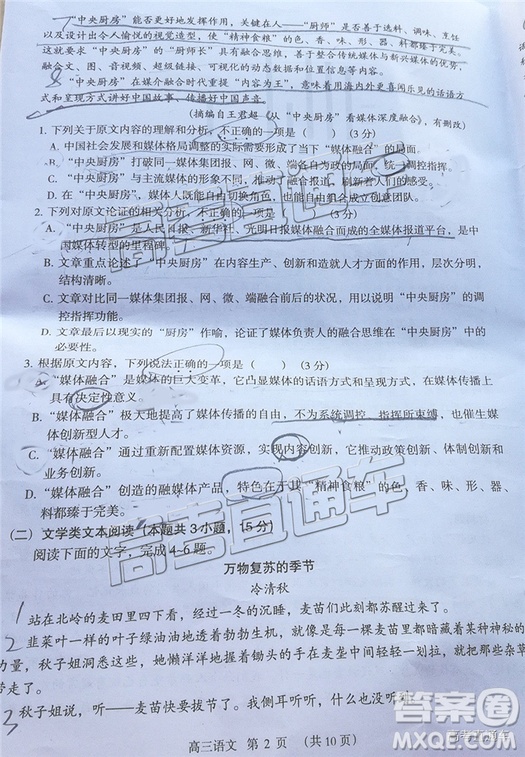 “中央厨房”能否更好地发挥作用，关键在人——“厨师”是否善于选料、调味、烹饪
以及设计出令人愉悦的视觉造型，使“精神食粮”的色、香、味、形、器、料都臻于完美。
这就要求“中央厨房”的“厨师长”具有创新思维，善于整合传统媒体与新兴媒体的优势，
融合文、图、音视频、超链接、可视化的动态数据和信息图表等多种手段，
“中央厨房”在媒介融合时代重提“内容为王”，意味着用海内外更喜闻乐见的话语方
式和呈现方式讲好中国故事、传播好中国声音。
（摘编自王君超《从“中央厨房”看媒体深度融合》，有删改）
1. 下列关于原文内容的理解和分析，不正确的一项是（ ）（3分）
A. 中国社会发展和媒体格局调整的实际需要形成了当下“媒体融合”的局面。
B. “中央厨房”打破了同一媒体集团报、网、微、端相互分离的局面，统一调控指挥。
C. “中央厨房”与主流媒体的形象不同，可通过融合创新激活年青人市场。
D. “中央厨房”的人员，既能自由切换角色，也能自由组合成创意团队。
2. 下列对原文论证的相关分析，不正确的一项是（ ）（3分）
A. “中央厨房”是人民日报、新华社、光明日报媒体融合而成的全媒体报道平台，是中
国媒体转型的里程碑。
B. 文章重点论述了“中央厨房”在内容生产、创新和造就人才方面的优势，层次分明，
结构清晰。
C. 文章以同一媒体集团报、网、微、端融合前后的对比，论述了“中央厨房”的调控
指挥功能。
D. 文章最后以同类的“厨房”作喻，论证了媒体负责人的融合思维在“中央厨房”中的
必要性。
3. 根据原文内容，下列说法正确的一项是（ ）（3分）
A. “媒体融合”是媒体的巨大变革，它代表了传统媒体的话语方式和呈现方式，具
有决定性意义。
B. “媒体融合”极大地提高了媒体传播的自由，不为系统调控、指挥所束缚，也催生媒
体创新型人才。
C. “媒体融合”通过重新配置媒体资源，实现内容创新、传播创新、技术创新，以及业
务创新。
D. “媒体融合”创造的融媒体产品，特色在于其“精神食粮”的色、香、味、形、器、料
都臻于完美。
（二）文学类文本阅读（本题共3小题，15分）
阅读下面的文字，完成4-6题。
万物复苏的季节
冷清秋
1 站在北岭的麦田里四下看，经过一冬的沉睡，麦苗们此刻都苏醒过来了。
2 韭菜叶一样的叶子绿油油地透着勃勃生机，就好像麦苗下面藏着某种神秘的
力量，秋子姐洞悉这些，她懒洋洋地握着锄头的手在田间轻轻一划拉，那些杂草
带走了。
3 秋子姐说，听——麦苗快要拔节了。你听听听，
高三语文 第2页 （共10页）
高考直通车
作业帮
www.mszye.com